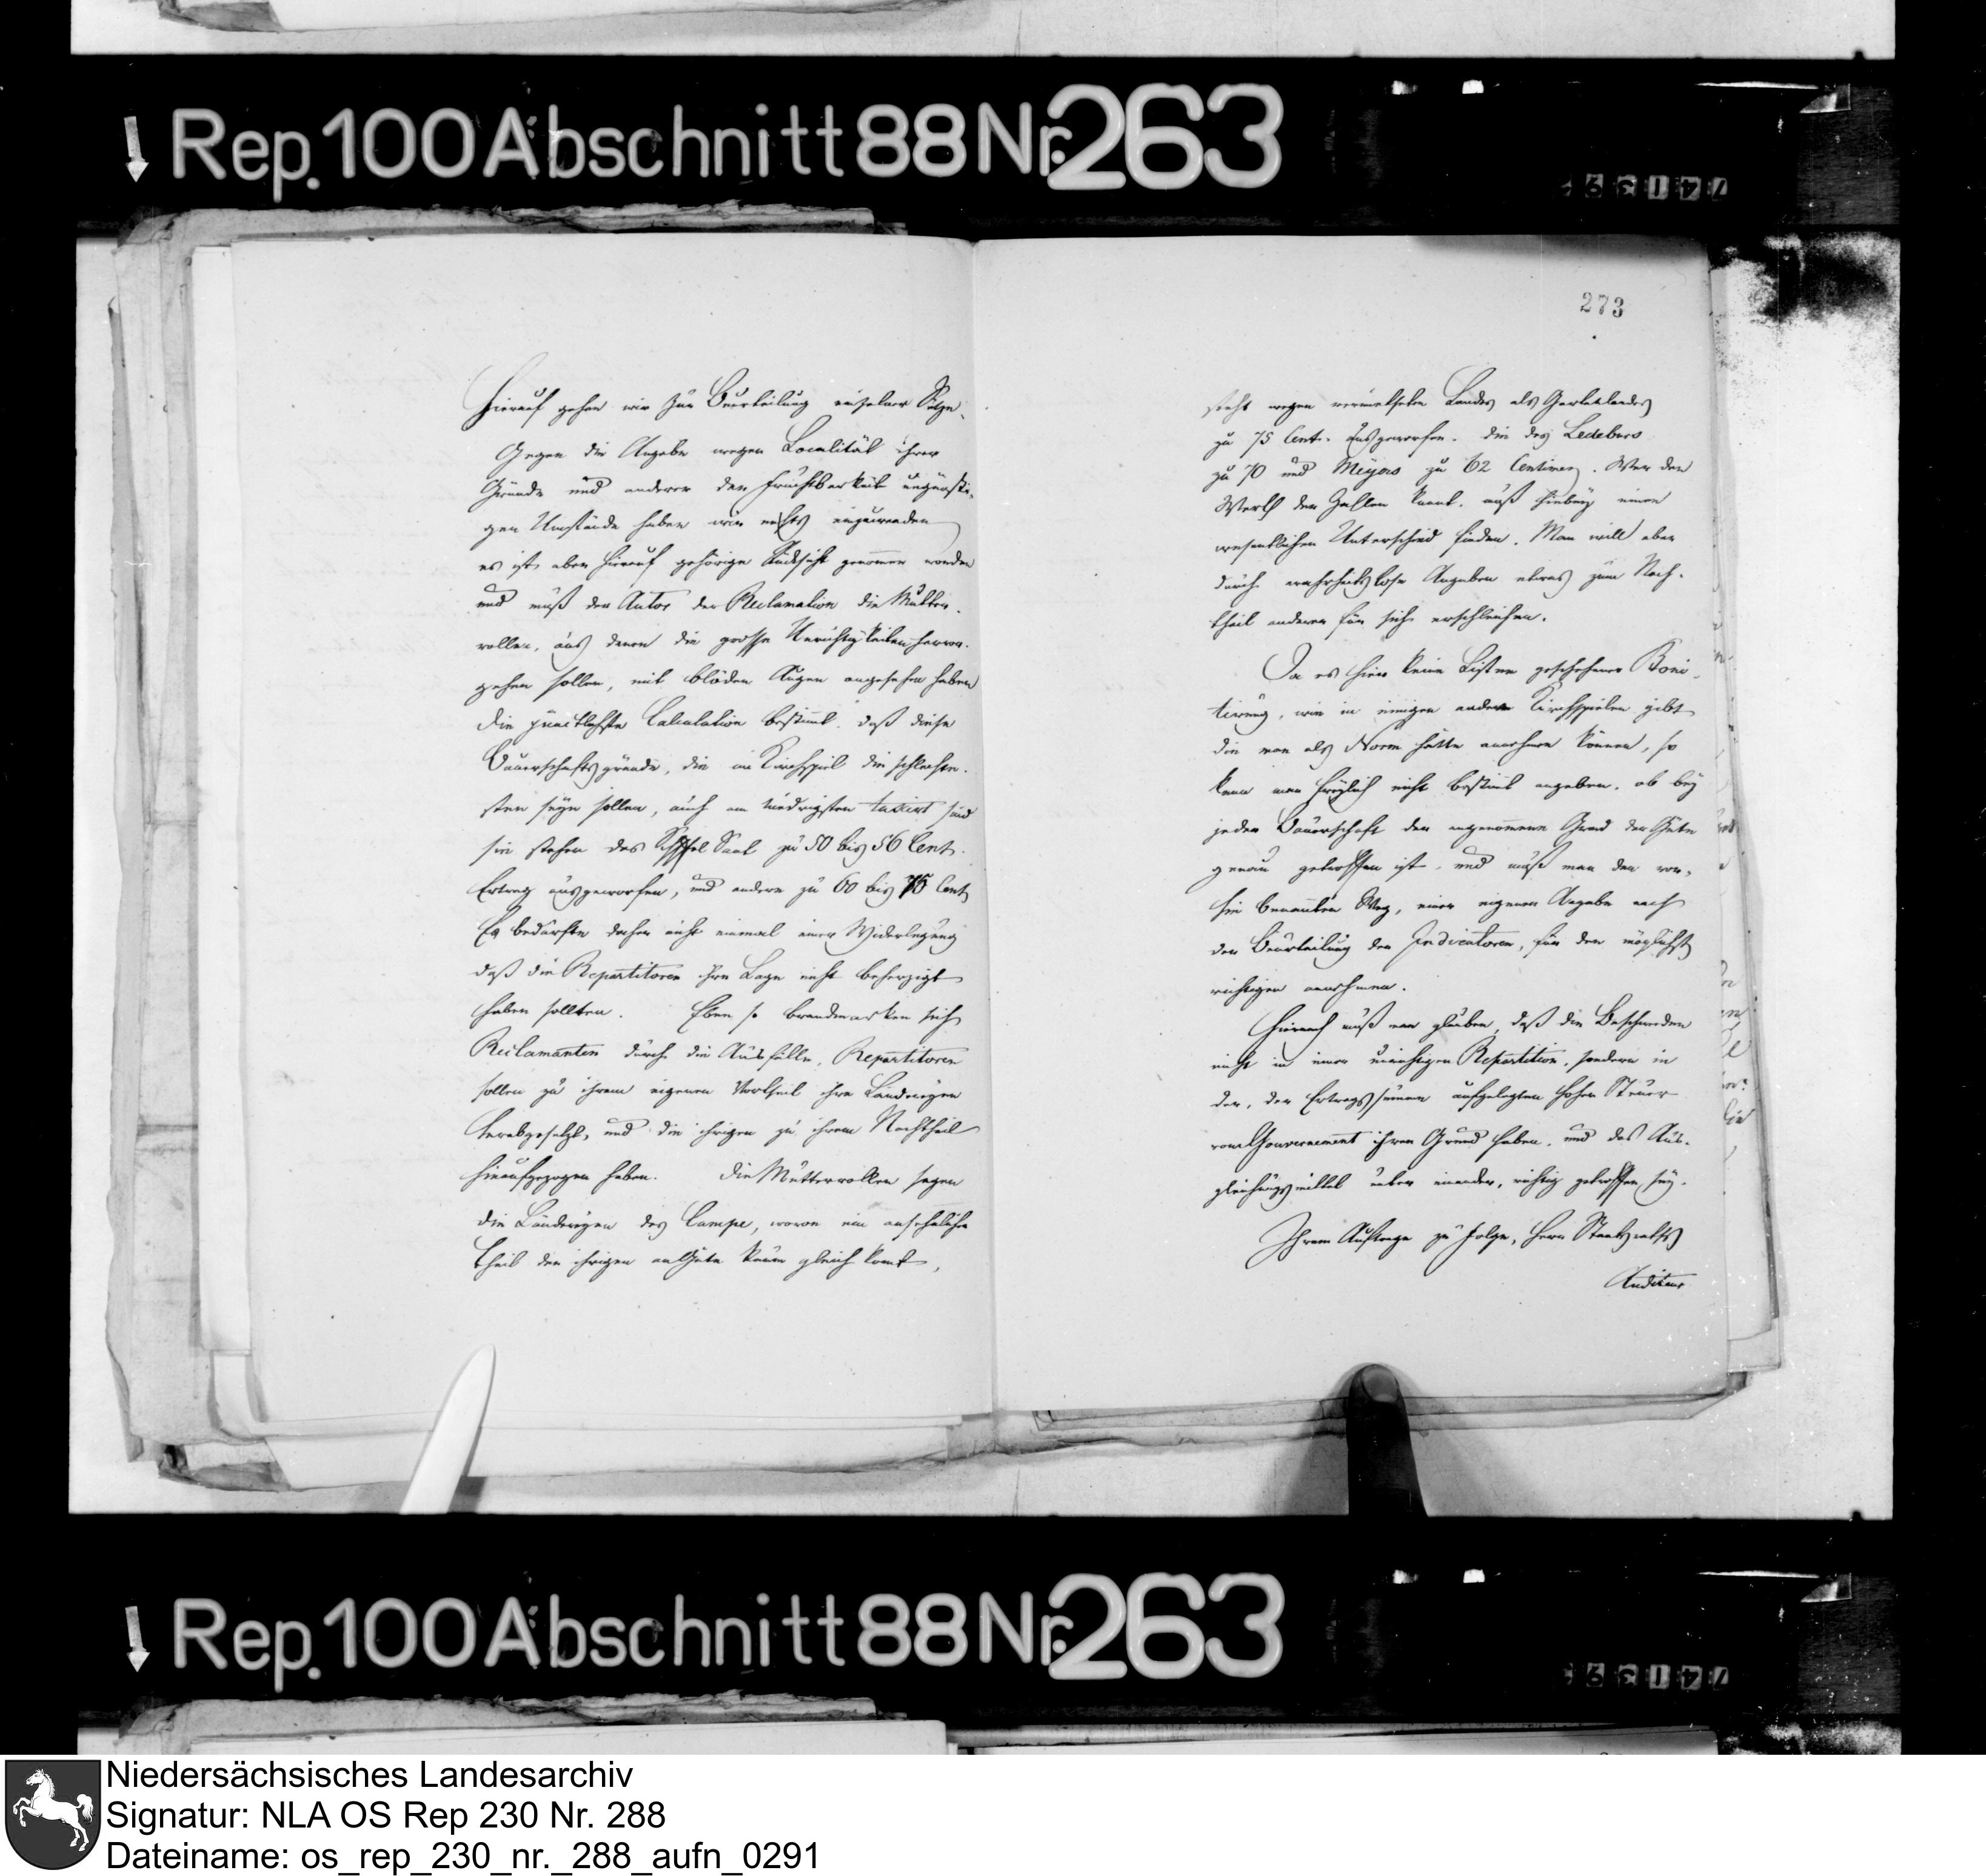 Rep. 100 Abschnitt 88 Nr. 263
74139
Hierauf gehen wir zur Beurteilung einzelner Sätze.
Gegen die Angabe wegen Localität ihrer
Gründe und anderer der Fruchtbarkeit ungünsti-
gen Umstände haben wir nichts einzuwenden
es ist aber hierauf gehörige Rücksicht genommen worden
und muß der Autor der Reclamation die Mutter-
rollen, aus denen die grosse Unrichtigkeiten hervor-
gehen sollen, mit blöden Augen angesehen haben
Die Calculation bestimmt, daß diese
Bauerschaftsgründe, die im Kirchspiel die schlechte-
sten seyn sollen, auch am niedrigsten taxirt sind
sie stehen das Scheffel Saat zu 50 bis 56 Cent.
Ertrag ausgeworfen, und andere zu 60 bis 75 Cent
Es bedürfte daher nicht einmal einer Widerlegung
daß die Repartitoren ihre Lage nicht beherzigt
haben sollten. Eben so brandmarken sich
Reclamanten durch die Ausfälle, Repartitoren
sollen zu ihrem eigenen Vortheil ihre Ländereyen
herabgesetzt, und die ihrigen zu ihrem Nachtheil
hinaufgezogen haben. Die Mutterrollen sagen
die Ländereyen des Campe, wovon ein ansehnliche
Theil den ihrigen an Güte kaum gleich komt,
273
steht wegen vermischten Landes als Gartenlandes
zu 75 Cent. ausgeworfen. die des Ledeburs
zu 70 und Meyers zu 62 Centimes. Wer den
Werth der Zahlen kennt, muß hiebey einen
wesentlichen Unterschied finden. Man will aber
durch wahrheitslose Angaben etwas zum Nach-
theil anderer für sich erschleichen.
Da es hier keine Listen geschehener Boni-
tirung, wie in einigen andern Kirchspielen gibt
die man als Norm hätte annehmen können, so
kann man freylich nicht bestimt angeben, ob bey
jeder Bauerschaft der angenommene Grad der Güte
genau getroffen ist und muß man den vor-
hin benannten Weg, einer eigenen Angabe nach
der Beurteilung der Indicatoren, für den möglichst
richtigen annehmen.
Hiernach muß man glauben, daß die Beschwerden
nicht in einer unrichtigen Repartition, sondern in
der, der Ertragssumme aufgelegten hohen Steuer
vom Gouvernement ihren Grund haben, und das Aus-
gleichungsmittel unter einander, richtig getroffen sey.
Ihrem Auftrage zu Folge, Herr Staatsraths
Auditeur
Rep. 100 Abschnitt 88 Nr. 263
74139
Niedersächsisches Landesarchiv
Signatur: NLA OS Rep 230 Nr. 288
Dateiname: os_rep_230_nr._288_aufn_0291